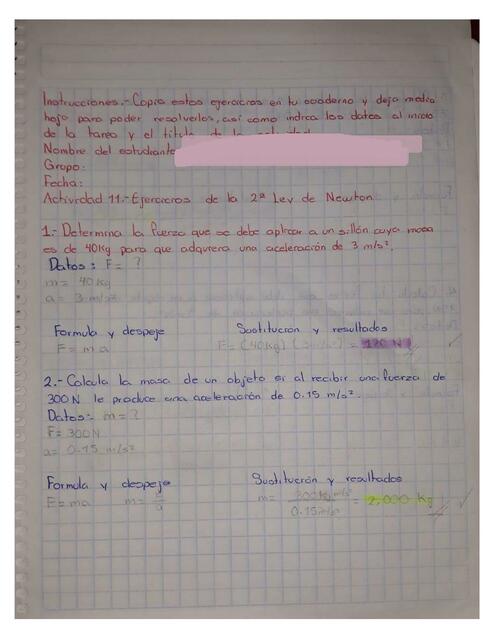 Instrucciones.- Copia estos ejercicios en tu cuaderno y deja media
hoja para poder resolverlos, así como indica los datos al inicio
de la tarea y el título de la
Nombre del estudiante
Grupo:
Fecha:
Actividad 11.- Ejercicios de la 2ª Ley de Newton
1.- Determina la fuerza que se debe aplicar a un sillón cuya masa
es de 40Kg para que adquiera una aceleración de 3 m/s².
Datos: F= ?
m= 40 Kg
a= 3 m/s²
Formula y despeje Sustitución y resultados
F= m a F= (40Kg) (3 m/s²) = 120 N
2.- Calcula la masa de un objeto si al recibir una fuerza de
300 N le produce una aceleración de 0.15 m/s².
Datos:- m= ?
F= 300 N
a= 0.15 m/s²
Formula y despeje Sustitución y resultados
F=ma m= F/a m= 300 Kg m/s² / 0.15 m/s² = 2,000 Kg